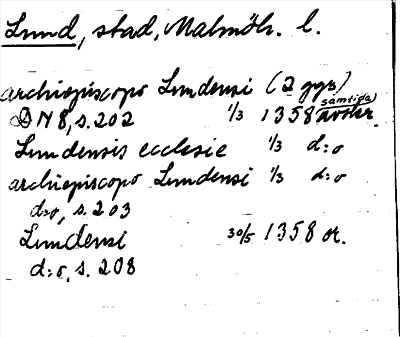 Lund, stad, Malmöh. l.
archiepiscopo Lundensi (2 ggr)
DN 8, s. 202 1/3 1358 samtida avskr.
Lundensis ecclesie 1/3 d:o
archiepiscopo Lundensi 1/3 d:o
d:o, s. 203
Lundensi 30/5 1358 or.
d:o, s. 208